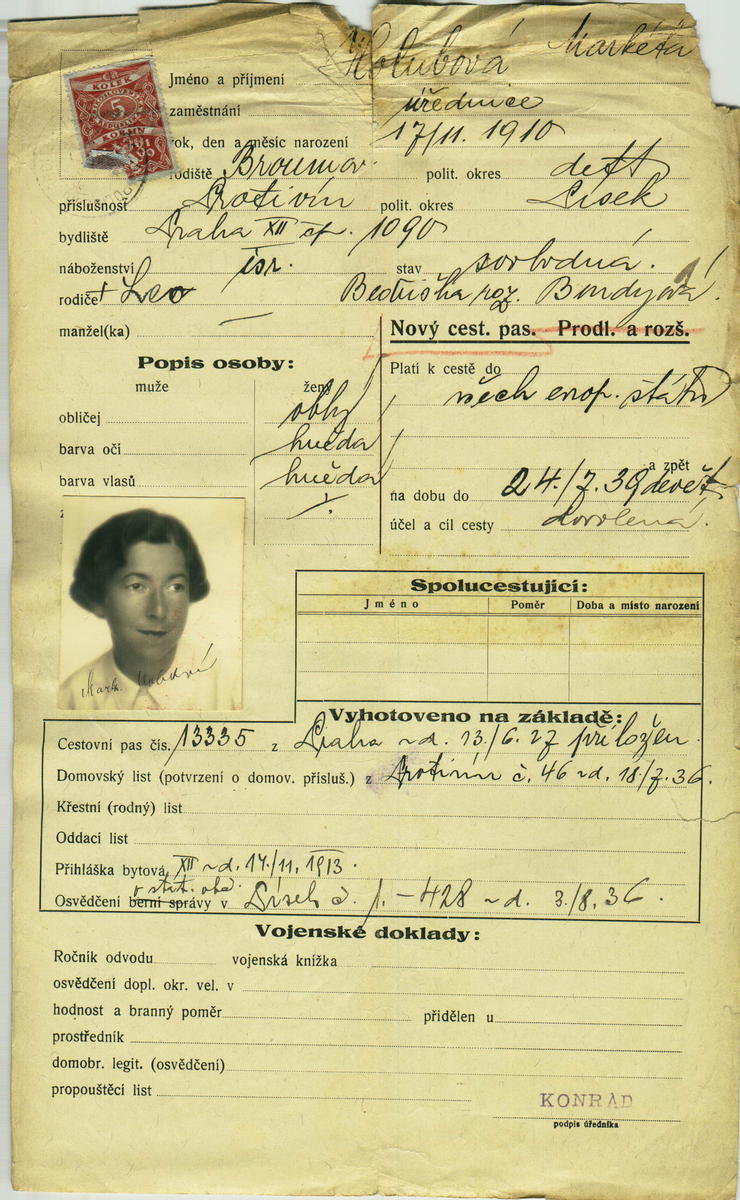 Holubová Markéta
Jméno a příjmení
KOLEK
5
zaměstnání úřednice
rok, den a měsíc narození 17/11. 1910
rodiště Broumov. polit. okres detto
příslušnost Protivín polit. okres Písek
bydliště Praha XII čp. 1090
náboženství isr. stav svobodná.
rodiče † Leo Bedřiška roz. Bondyová.
manžel(ka) —
Nový cest. pas. Prodl. a rozš.
Popis osoby:
muže ženy
Platí k cestě do
všech evrop. států
obličej oblý
barva očí hnědá
barva vlasů hnědá
a zpět
na dobu do 24./7. 39
účel a cíl cesty dovolená.
Mark. Holubová
Spolucestující:
Jméno Poměr Doba a místo narození
Vyhotoveno na základě:
Cestovní pas čís. 13335 z Praha z d. 13./6. 27 přiložen.
Domovský list (potvrzení o domov. přísluš.) z Protivín č. 46 z d. 18/7. 36.
Křestní (rodný) list
Oddací list
Přihláška bytová XII z d. 14/11. 1913.
o stát. obč.
Osvědčení berní správy v Písek č. j. – 428 z d. 3/8. 36.
Vojenské doklady:
Ročník odvodu vojenská knížka
osvědčení dopl. okr. vel. v
hodnost a branný poměr přidělen u
prostředník
domobr. legit. (osvědčení)
propouštěcí list
KONRAD
podpis úředníka